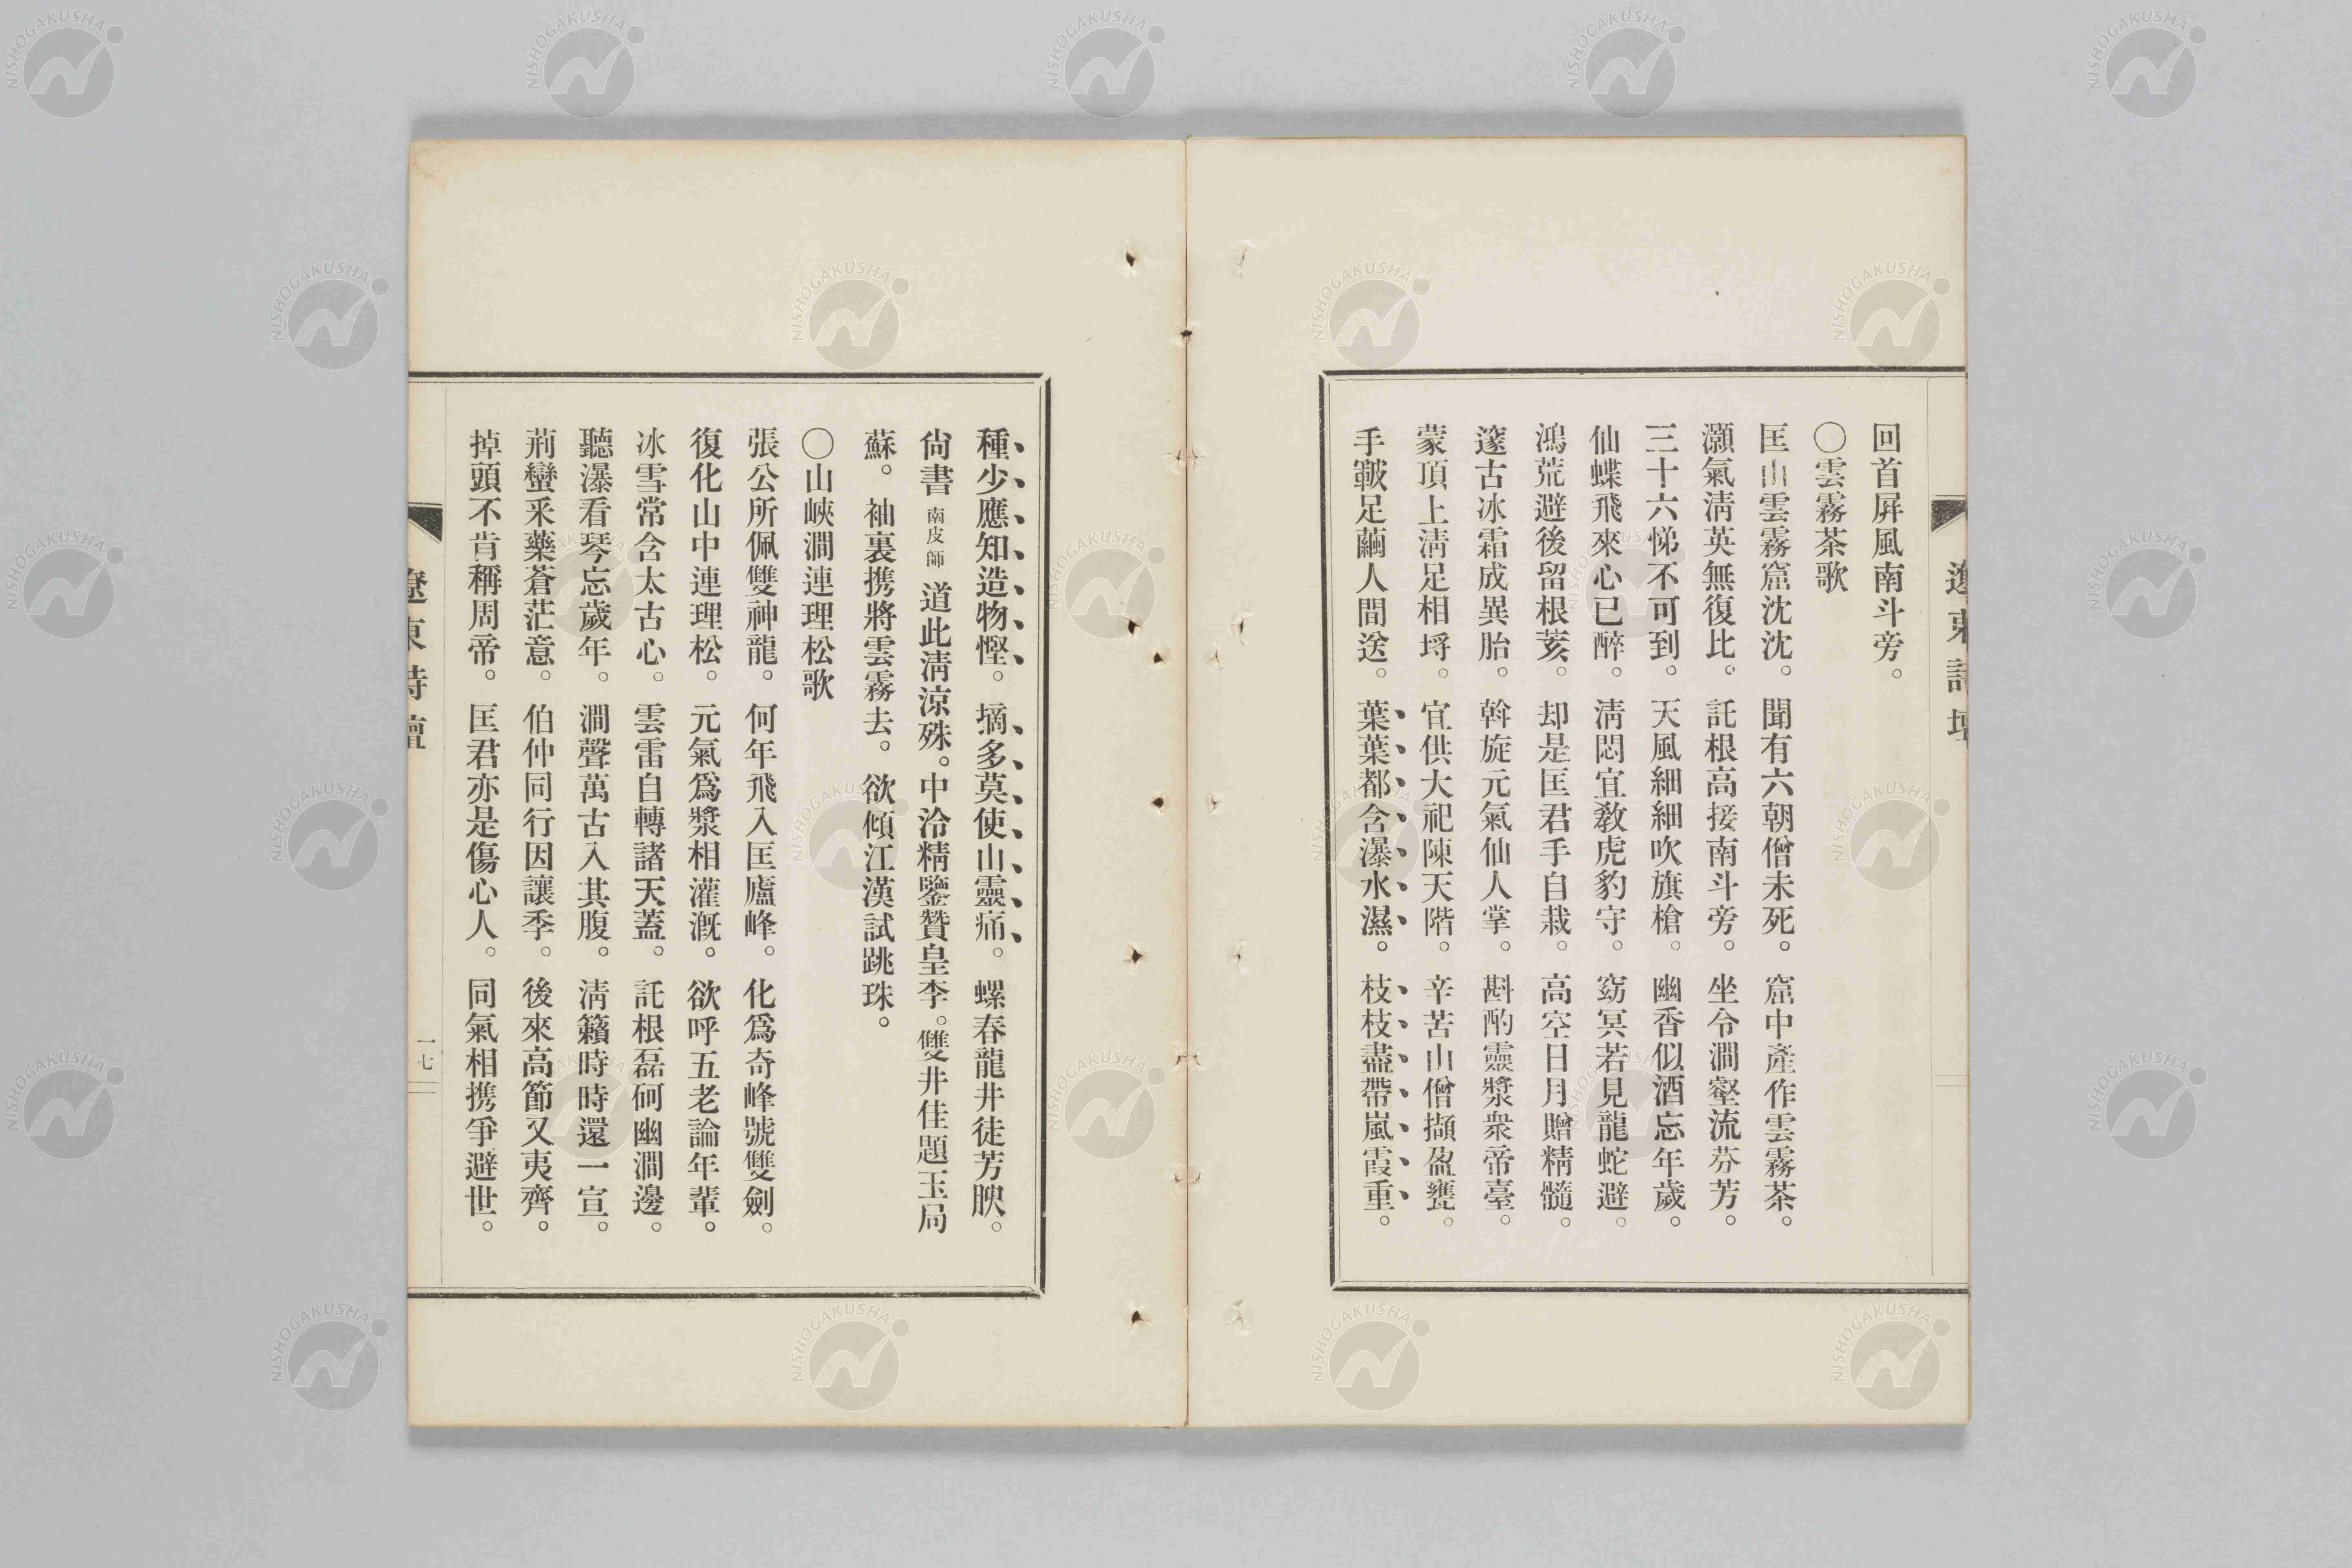 回首屛風南斗旁。
〇雲霧茶歌
匡山雲霧窟沈沈。聞有六朝僧未死。窟中產作雲霧茶。
灝氣淸英無復比。託根高接南斗旁。坐令澗壑流芬芳。
三十六悌不可到。天風細細吹旗槍。幽香似酒忘年歲。
仙蝶飛來心已醉。淸悶宜敎虎豹守。窈冥若見龍蛇避。
鴻荒避後留根荄。却是匡君手自栽。高空日月贈精髓。
邃古冰霜成異胎。斡旋元氣仙人掌。斟酌靈漿衆帝臺。
蒙頂上淸足相埒。宜供大祀陳天階。辛苦山僧擷盈甕。
手皸足繭人間送。葉葉都含瀑水濕。枝枝盡帶嵐霞重。
遼東詩壇
種少應知造物慳。摘多莫使山靈痛。螺春龍井徒芳腴。
尙書南皮師道此淸涼殊。中泠精鑒贊皇李。雙井佳題玉局
蘇。袖裏携將雲霧去。欲傾江漢試跳珠。
〇山峽澗連理松歌
張公所佩雙神龍。何年飛入匡廬峰。化爲奇峰號雙劍。
復化山中連理松。元氣爲漿相灌漑。欲呼五老論年輩。
冰雪常含太古心。雲雷自轉諸天蓋。託根磊砢幽澗邊。
聽瀑看琴忘歲年。澗聲萬古入其腹。淸籟時時還一宣。
荊蠻釆藥蒼茫意。伯仲同行因讓季。後來高節又夷齊。
掉頭不肯稱周帝。匡君亦是傷心人。同氣相携爭避世。
遼東詩壇
一七
NISHOGAKUSHA